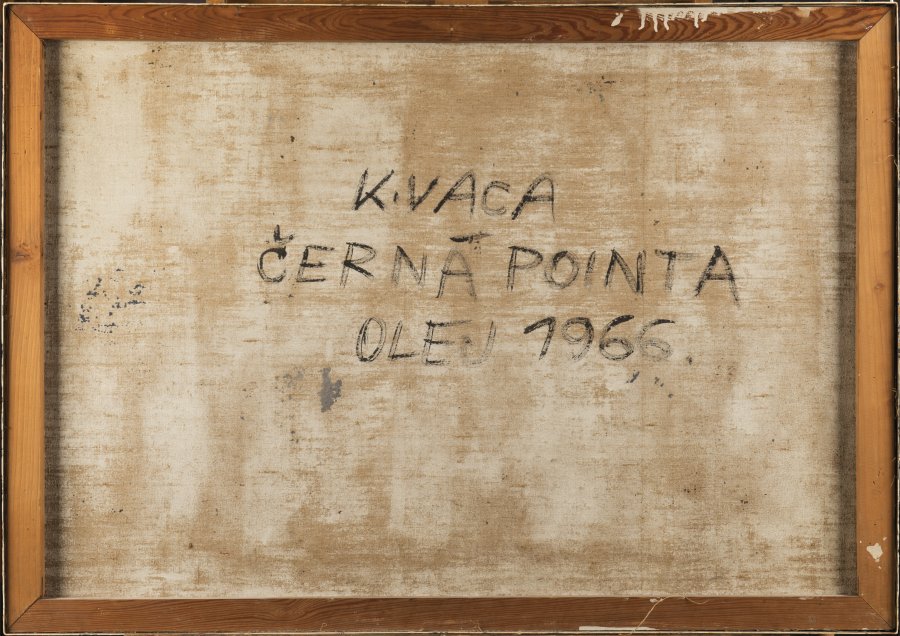 K.VACA
ČERNÁ POINTA
OLEJ 1966.